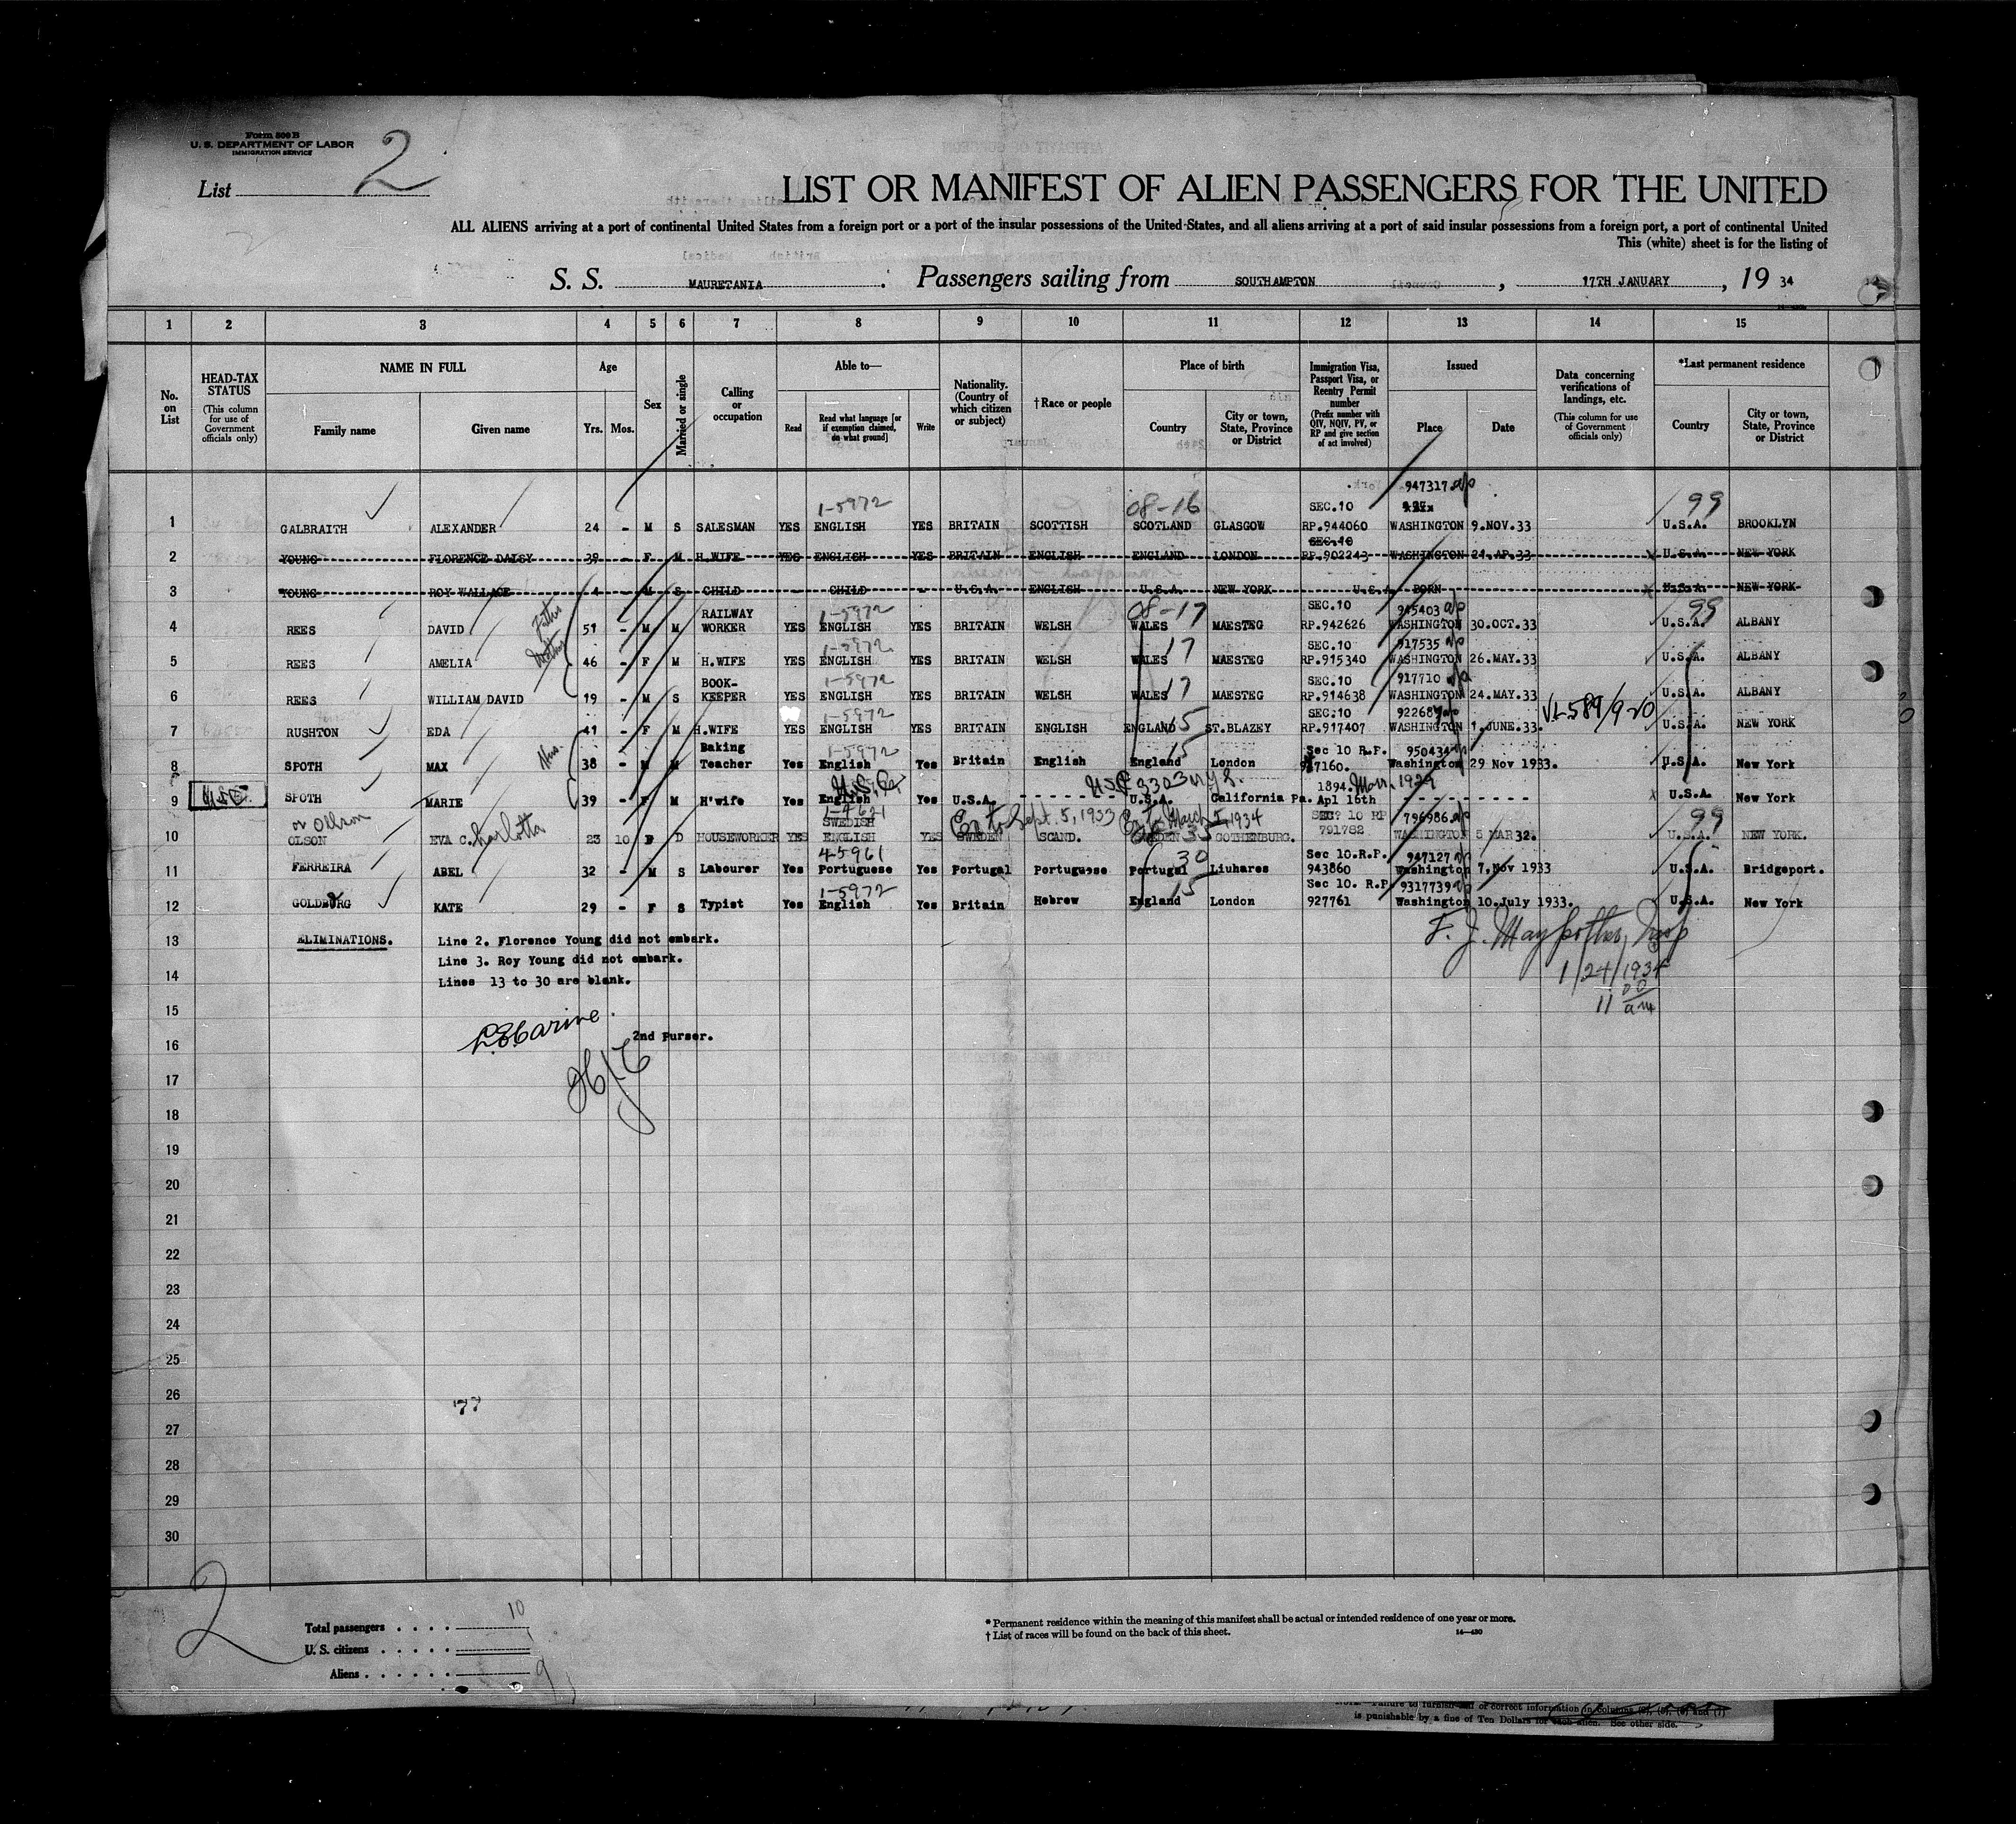 Form 500 B
U. S. DEPARTMENT OF LABOR
IMMIGRATION SERVICE
List 2
LIST OR MANIFEST OF ALIEN PASSENGERS FOR THE UNITED
ALL ALIENS arriving at a port of continental United States from a foreign port or a port of the insular possessions of the United States, and all aliens arriving at a port of said insular possessions from a foreign port, a port of continental United
This (white) sheet is for the listing of
S. S. MAURETANIA Passengers sailing from SOUTHAMPTON , 17TH JANUARY , 19 34
1 2 3 4 5 6 7 8 9 10 11 12 13 14 15
No. on List
HEAD-TAX STATUS
(This column for use of Government officials only)
NAME IN FULL
Family name Given name
Age
Yrs. Mos.
Sex
Married or single
Calling or occupation
Able to—
Read Read what language [or if exemption claimed, on what ground] Write
Nationality. (Country of which citizen or subject)
†Race or people
Place of birth
Country City or town, State, Province or District
Immigration Visa, Passport Visa, or Reentry Permit number
(Prefix number with QIV, NQIV, PV, or RP and give section of act involved)
Issued
Place Date
Data concerning verifications of landings, etc.
(This column for use of Government officials only)
*Last permanent residence
Country City or town, State, Province or District
1-5972 08-16 SEC.10 947317 99
1 GALBRAITH ALEXANDER 24 - M S SALESMAN YES ENGLISH YES BRITAIN SCOTTISH SCOTLAND GLASGOW RP.944060 WASHINGTON 9.NOV.33 U.S.A. BROOKLYN
SEC.10
2 YOUNG FLORENCE DAISY 39 - F M H.WIFE YES ENGLISH YES BRITAIN ENGLISH ENGLAND LONDON RP.902243 WASHINGTON 24.AP.33 x U.S.A. NEW YORK
3 YOUNG ROY WALLACE 4 - M S CHILD - CHILD - U.S.A. ENGLISH U.S.A. NEW YORK U.S.A. BORN x U.S.A. NEW YORK
Father RAILWAY 1-5972 08-17 SEC.10 945403 99
4 REES DAVID 51 - M M WORKER YES ENGLISH YES BRITAIN WELSH WALES MAESTEG RP.942626 WASHINGTON 30.OCT.33 U.S.A. ALBANY
Mother 1-5972 17 SEC.10 917535
5 REES AMELIA 46 - F M H.WIFE YES ENGLISH YES BRITAIN WELSH WALES MAESTEG RP.915340 WASHINGTON 26.MAY.33 U.S.A. ALBANY
BOOK- 1-5972 17 SEC.10 917710
6 REES WILLIAM DAVID 19 - M S KEEPER YES ENGLISH YES BRITAIN WELSH WALES MAESTEG RP.914638 WASHINGTON 24.MAY.33 U.S.A. ALBANY
1-5972 15 SEC.10 VL589/920
7 RUSHTON EDA 41 - F M H.WIFE YES ENGLISH YES BRITAIN ENGLISH ENGLAND ST.BLAZEY RP.917407 WASHINGTON 1.JUNE.33. U.S.A. NEW YORK
Baking 1-5972 15 Sec 10 R.P. 950434
8 SPOTH MAX 38 - M M Teacher Yes English Yes Britain English England London Washington 29 Nov 1933. U.S.A. New York
1894.
9 SPOTH MARIE 39 - F M H'wife Yes English Yes U.S.A. U.S.A. California Pa. Apl 16th x U.S.A. New York
or Ollson 1-4621 SWEDISH Ex to Sept. 5, 1933 Ex to March 5, 1934 SEC? 10 RP 796986 99
10 OLSON EVA C. harlotta 23 10 F D HOUSEWORKER YES ENGLISH YES SWEDEN SCAND. SWEDEN 35 GOTHENBURG. 791782 WASHINGTON 5 MAR 32. U.S.A. NEW YORK.
4-5961 30 Sec 10.R.P. 947127
11 FERREIRA ABEL 32 - M S Labourer Yes Portuguese Yes Portugal Portuguese Portugal Liuhares 943860 Washington 7.Nov 1933 U.S.A. Bridgeport.
1-5972 15 Sec 10. R.P 9317739
12 GOLDBERG KATE 29 - F S Typist Yes English Yes Britain Hebrew England London 927761 Washington 10.July 1933. U.S.A. New York
13 ELIMINATIONS. Line 2. Florence Young did not embark.
Line 3. Roy Young did not embark.
14 Lines 13 to 30 are blank.
1/24/1934
11 00 am
15
16 2nd Purser.
17
18
19
20
21
22
23
24
25
26
77
27
28
29
30
2
Total passengers 10
U. S. citizens 1
Aliens 9
* Permanent residence within the meaning of this manifest shall be actual or intended residence of one year or more.
† List of races will be found on the back of this sheet. 14—430
Failure to furnish or correct information in columns (3), (5), (6) and (7)
is punishable by a fine of Ten Dollars for each alien. See other side.